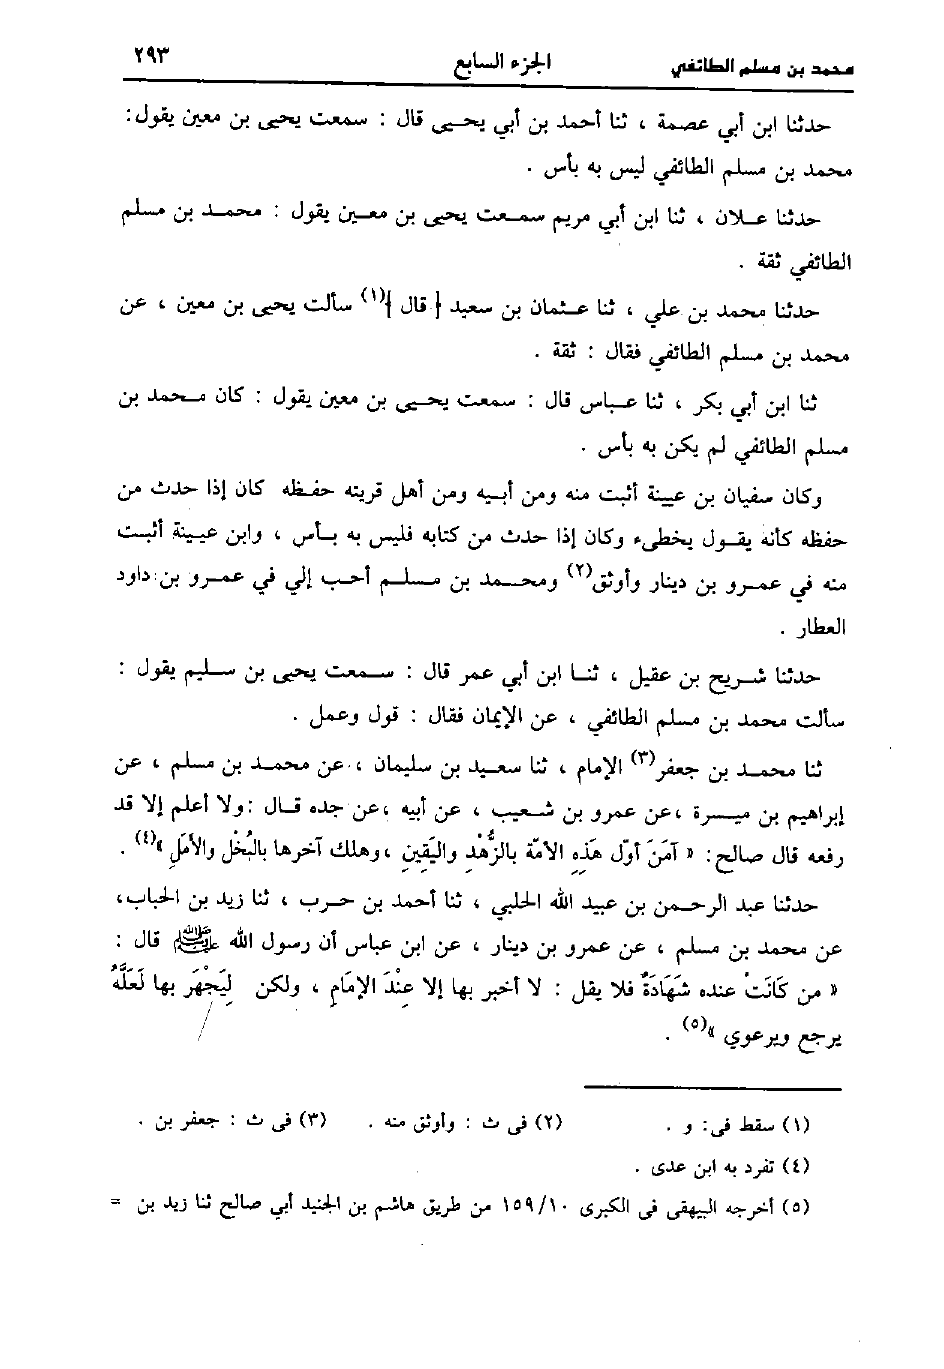 محمد بن مسلم الطائفي الجزء السابع ٢٩٣
حدثنا ابن أبي عصمة ، ثنا أحمد بن أبي يحيى قال : سمعت يحيى بن معين يقول :
محمد بن مسلم الطائفي ليس به بأس .
حدثنا علان ، ثنا ابن أبي مريم سمعت يحيى بن معين يقول : محمد بن مسلم
الطائفي ثقة .
حدثنا محمد بن علي ، ثنا عثمان بن سعيد [ قال ](١) سألت يحيى بن معين ، عن
محمد بن مسلم الطائفي فقال : ثقة .
ثنا ابن أبي بكر ، ثنا عباس قال : سمعت يحيى بن معين يقول : كان محمد بن
مسلم الطائفي لم يكن به بأس .
وكان سفيان بن عيينة أثبت منه ومن أبيه ومن أهل قريته حفظه كان إذا حدث من
حفظه كأنه يقول يخطىء وكان إذا حدث من كتابه فليس به بأس ، وابن عيينة أثبت
منه في عمرو بن دينار وأوثق(٢) ومحمد بن مسلم أحب إلي في عمرو بن داود
العطار .
حدثنا شريح بن عقيل ، ثنا ابن أبي عمر قال : سمعت يحيى بن سليم يقول :
سألت محمد بن مسلم الطائفي ، عن الإيمان فقال : قول وعمل .
ثنا محمد بن جعفر(٣) الإمام ، ثنا سعيد بن سليمان ، عن محمد بن مسلم ، عن
إبراهيم بن ميسرة ، عن عمرو بن شعيب ، عن أبيه ، عن جده قال : ولا أعلم إلا قد
رفعه قال صالح : « آمَنَ أوّل هَذِهِ الأمّة بالزُّهْدِ واليَقِينِ ، وهلك آخرها بالبُخْلِ والأمَلِ »(٤) .
حدثنا عبد الرحمن بن عبيد الله الحلبي ، ثنا أحمد بن حرب ، ثنا زيد بن الحباب،
عن محمد بن مسلم ، عن عمرو بن دينار ، عن ابن عباس أن رسول الله ﷺ قال :
« من كَانَتْ عنده شَهَادَةٌ فلا يقل : لا أخبر بها إلا عِنْدَ الإمَامِ ، ولكن لِيَجْهَر بها لَعَلَّهُ
يرجع ويرعوي »(٥) .
(١) سقط فى: و . (٢) فى ث : وأوثق منه . (٣) فى ث : جعفر بن .
(٤) تفرد به ابن عدى .
(٥) أخرجه البيهقى فى الكبرى ١٠/ ١٥٩ من طريق هاشم بن الجنيد أبي صالح ثنا زيد بن =